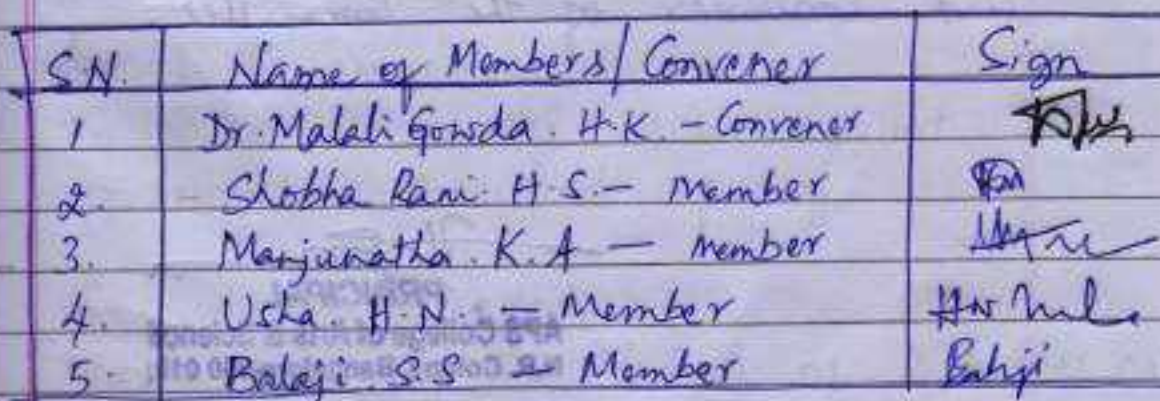 SN. Name of Members/Convener Sign
1 Dr. Malali Gowda. H.K. - Convener
2. Shobha Rani. H.S. - Member
3. Manjunatha. K.A - Member
4. Usha. H.N. - Member
5. Balaji. S.S - Member Balaji